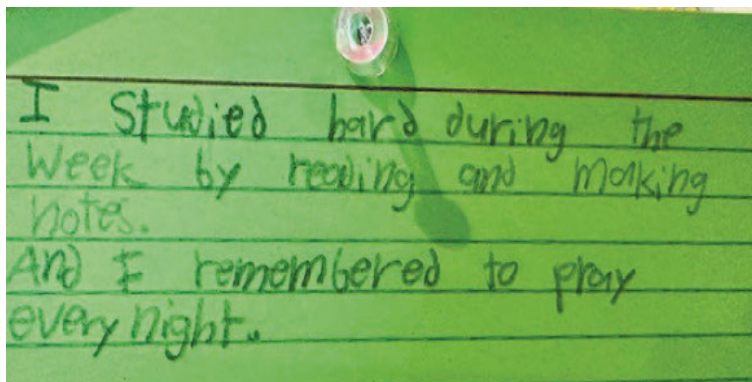 I Studied hard during the
Week by reading and making
notes.
And I remembered to pray
every night.